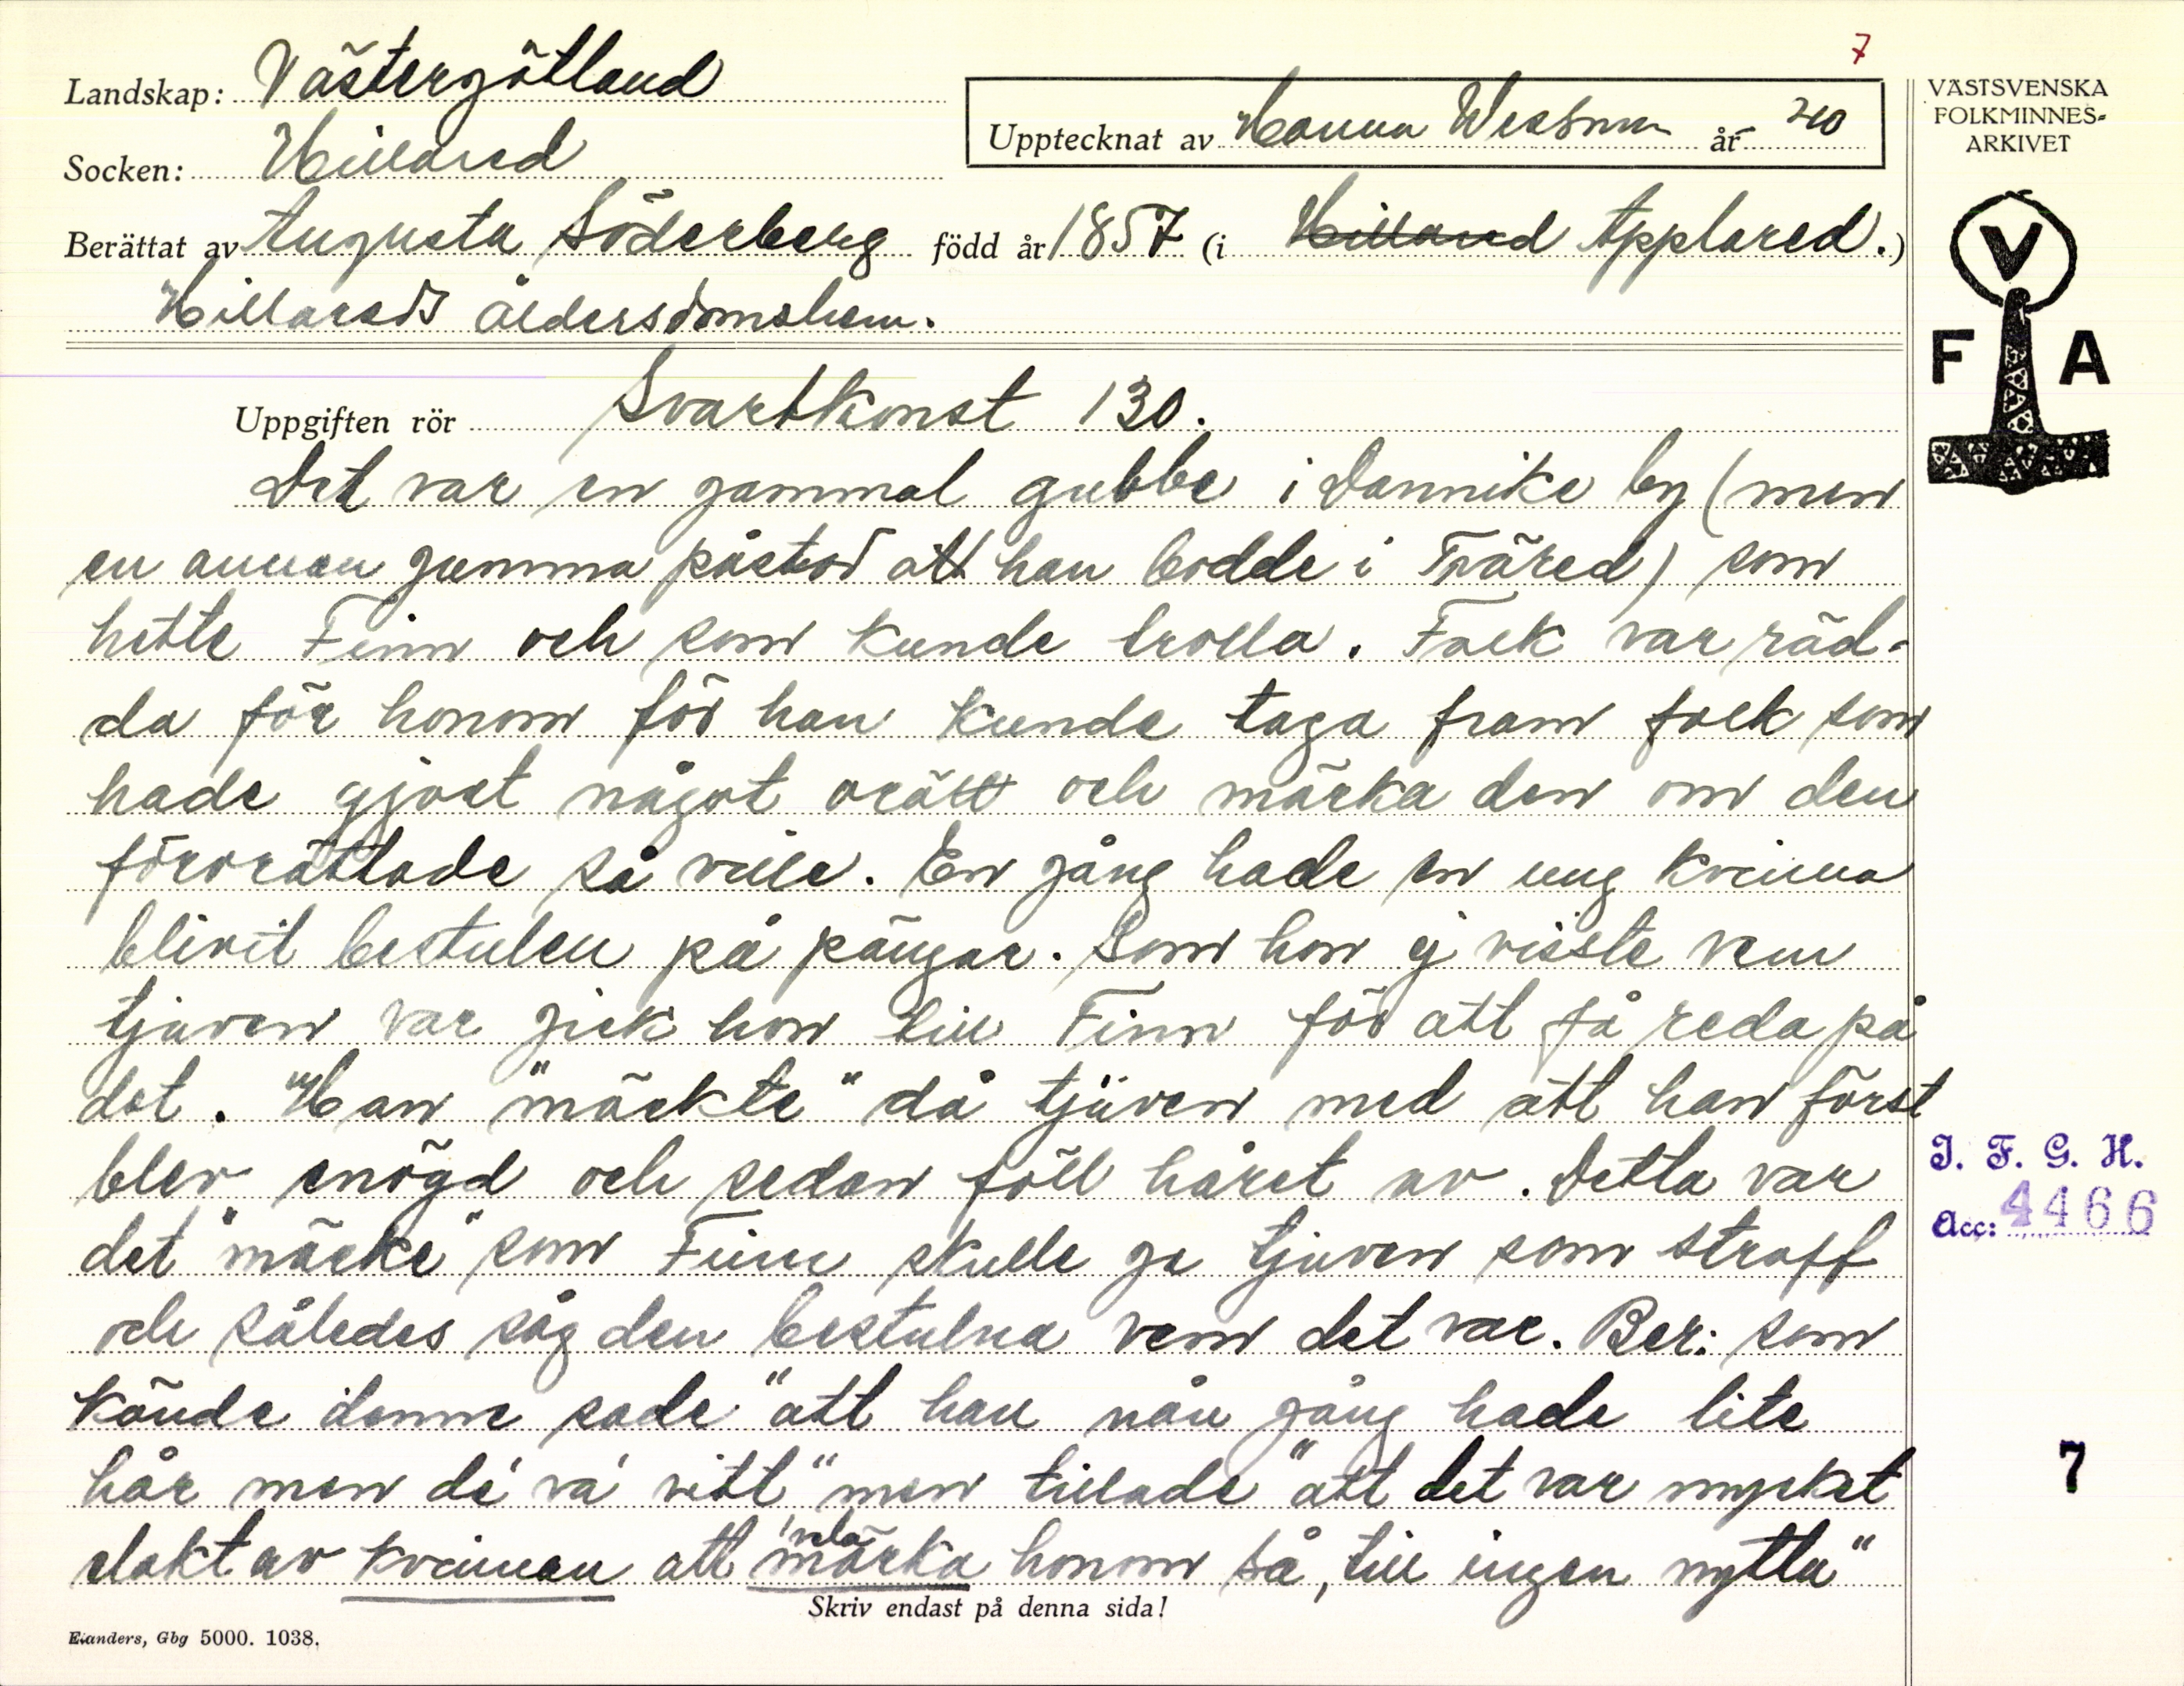 7
Landskap: Västergötland
Socken: Hillared
Upptecknat av Hanna Wessman år 40
Berättat av Augusta Söderberg född år 1857 (i Hillared Applared.)
Hillareds ålderdomshem.
Uppgiften rör Svartkonst 130.
Det var en gammal gubbe i Dannike by (men
en annan gumma påstod att han bodde i Träred) som
hette Finn och som kunde trolla. Folk var räd-
da för honom för han kunde taga fram folk som
hade gjort något orätt och märka den om den
förorättade så ville. En gång hade en ung kvinna
blivit bestulen på pängar. Som hon ej visste vem
tjuven var gick hon till Finn för att få reda på
det. Han "märkte" då tjuven med att han först
blev enögd och sedan föll håret av. Detta var
det "märke" som Finn skulle ge tjuven som straff
och således såg den bestulna vem det var. Ber: som
kände denne sade "att han nån gång hade lite
hår men de' va' vitt" men tillade "att det var mycket
elakt av kvinnan att vela märka honom så, till ingen nytta"
Skriv endast på denna sida!
Elanders, Gbg 5000. 1038.
VÄSTSVENSKA
FOLKMINNES-
ARKIVET
V
F A
I. F. G. H.
Acc: 4466
7